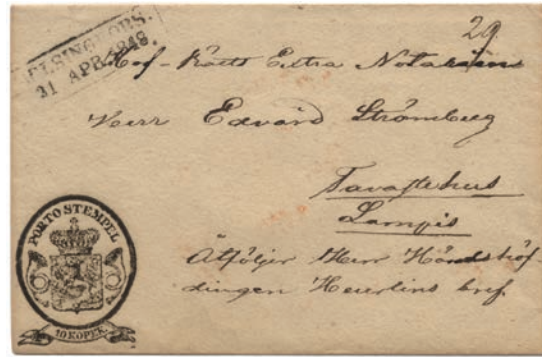 29.
HELSINGFORS.
31 APR. 1848.
Hof-Rätts Extra Notarien
Herr Edvard Strömberg
Tavastehus
Lampis
Åtföljer Herr Häradshöf-
dingen Heurlins bref.
PORTO STEMPEL
10 KOPEK.